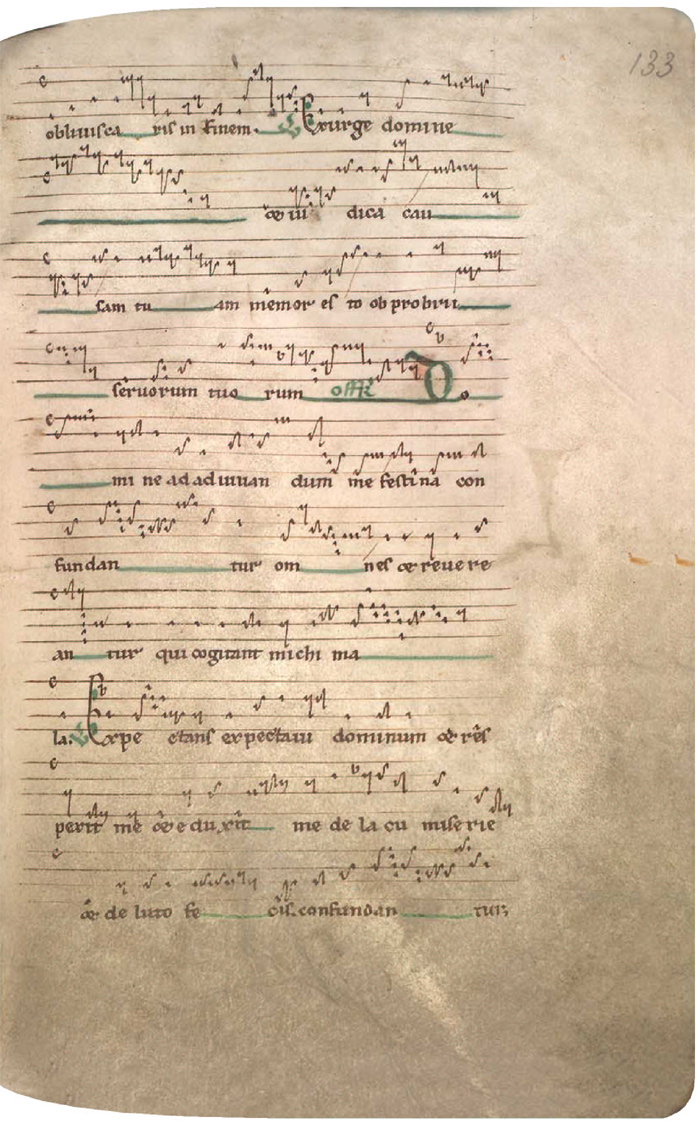 133
obliuisca ris in finem. V Exurge domine
et iu dica cau
sam tu am memor es to ob probrii
seruorum tuo rum offR Do
mi ne ad adiuuan dum me festi na con
fundan tur om nes et reuere
an tur qui cogitant michi ma
la. V Expe ctans expectaui dominum et res
perit me et e du xit me de la cu miserie
et de luto fe cis. confundan tur